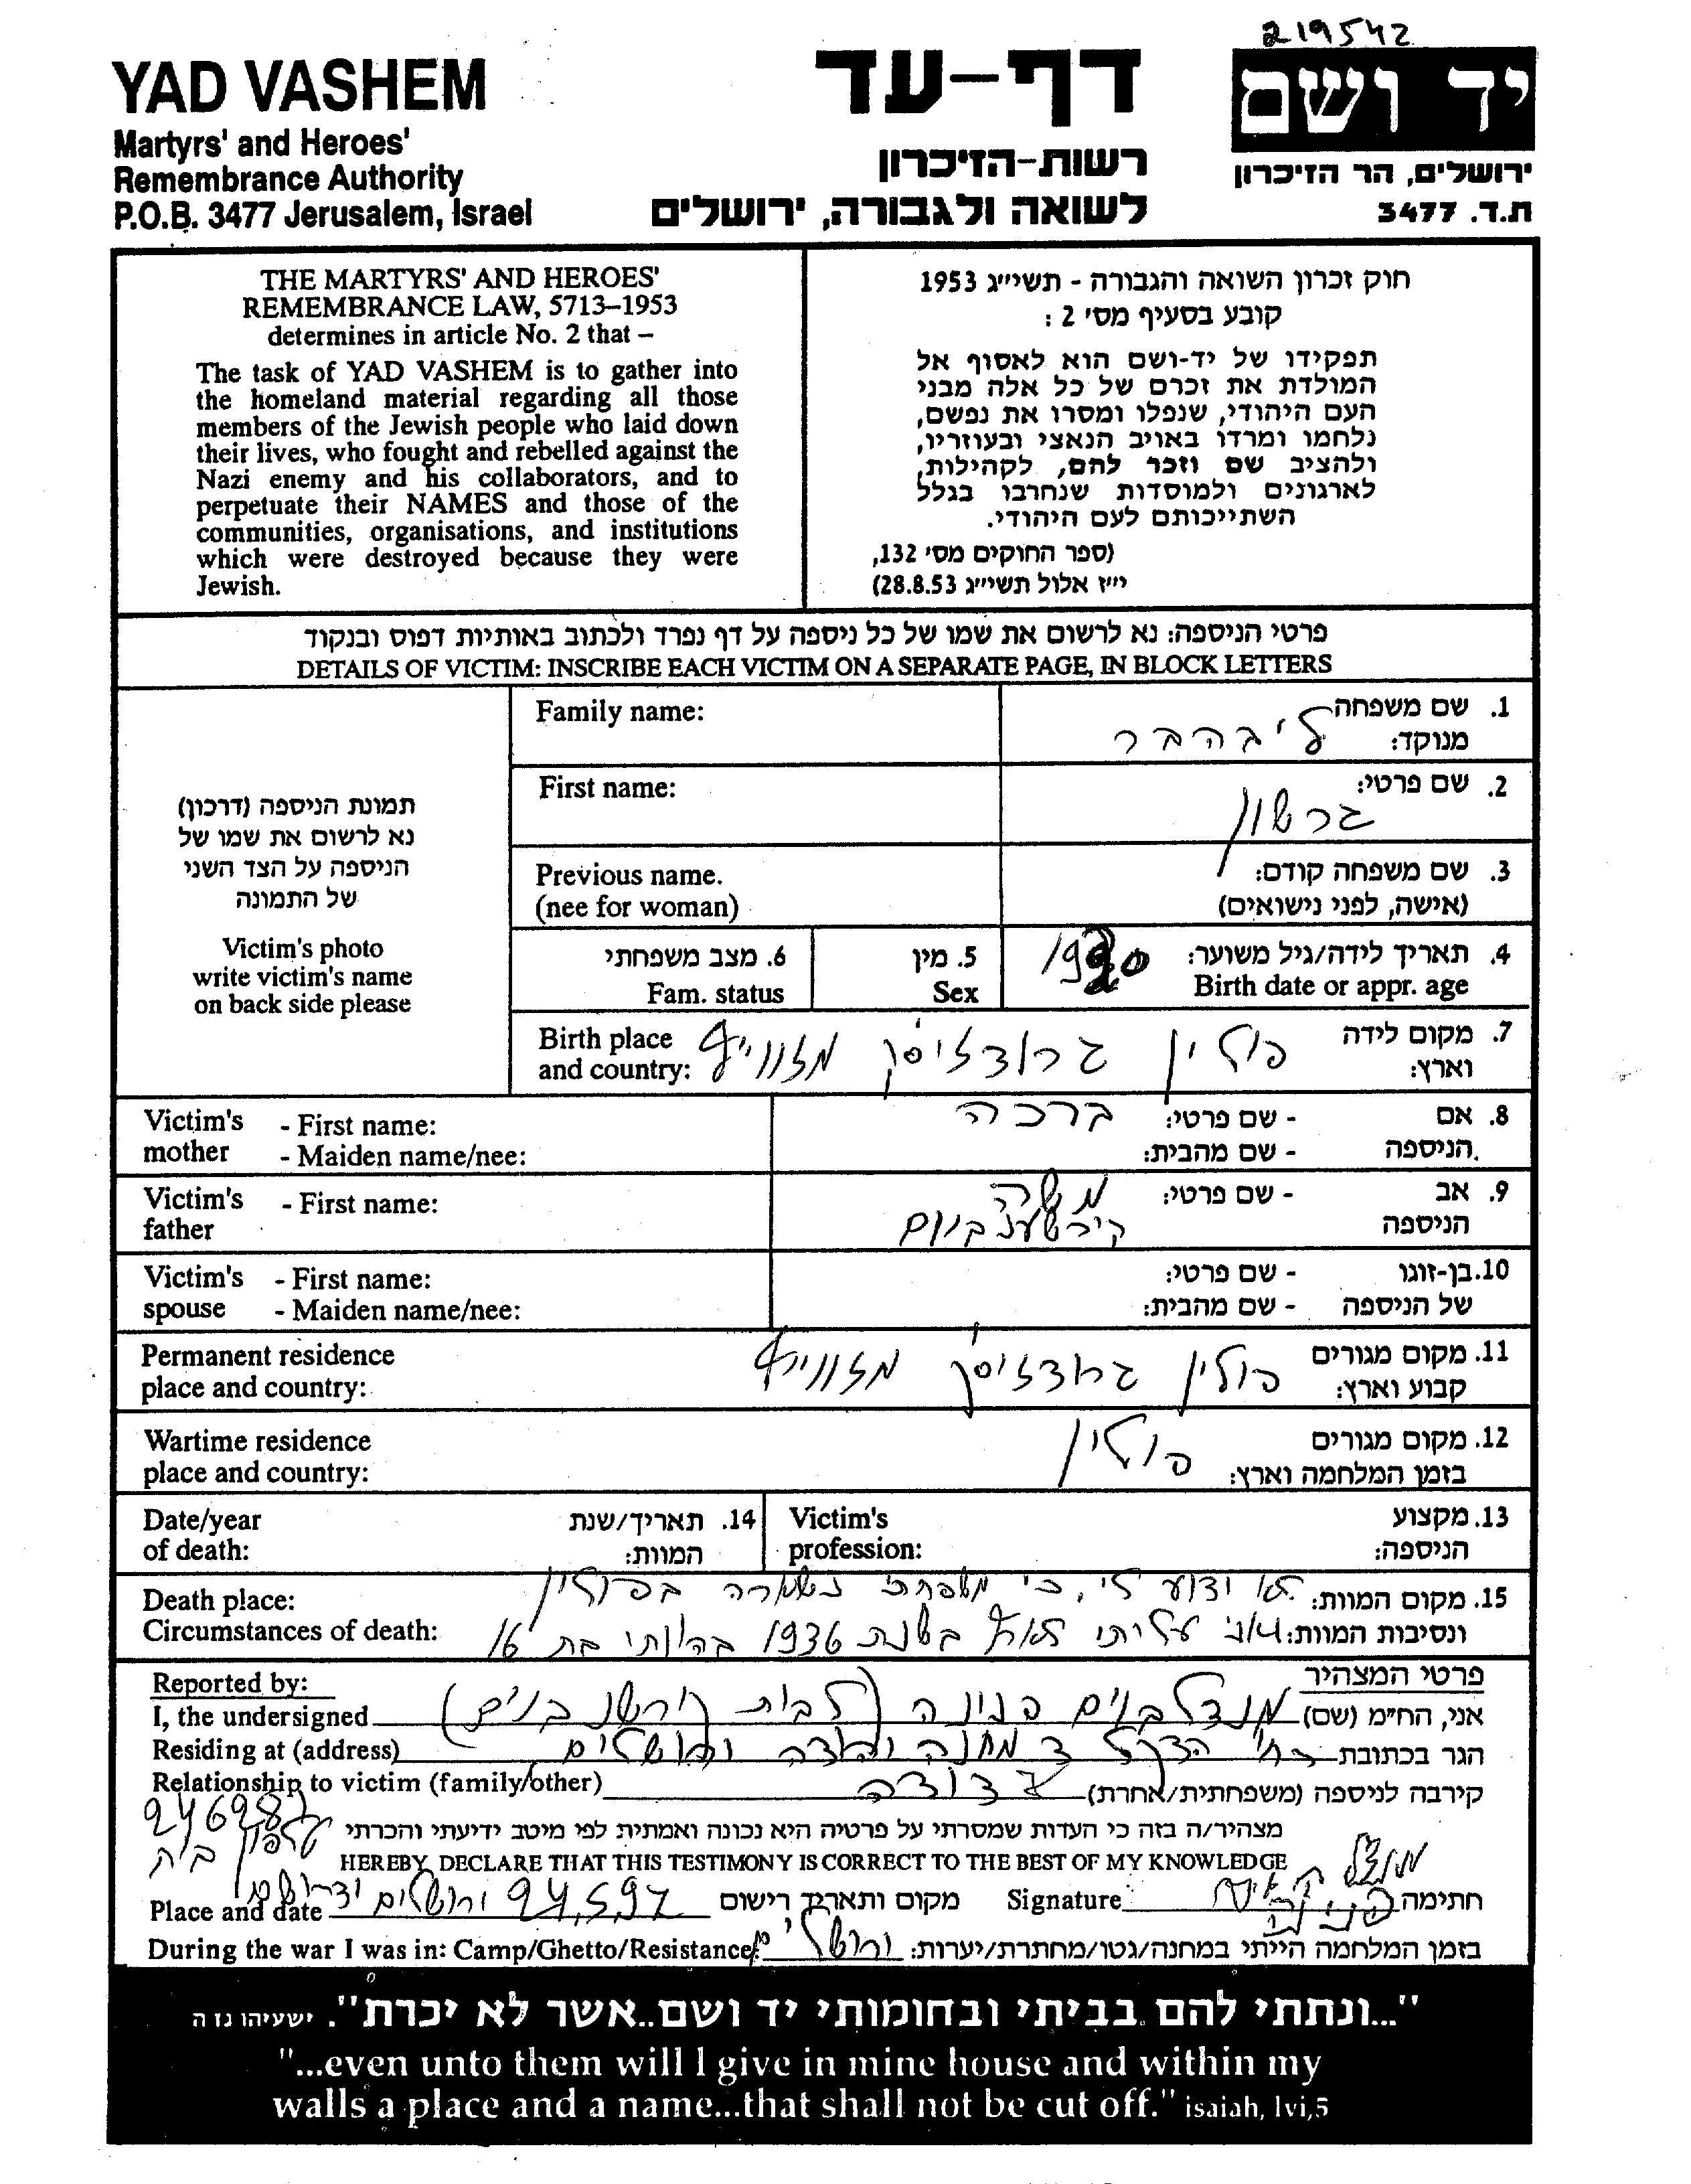 219542
YAD VASHEM
Martyrs' and Heroes'
Remembrance Authority
P.O.B. 3477 Jerusalem, Israel
דף-עד
רשות-הזיכרון
לשואה ולגבורה, ירושלים
יד ושם
ירושלים, הר הזיכרון
ת.ד. 3477
THE MARTYRS' AND HEROES'
REMEMBRANCE LAW, 5713–1953
determines in article No. 2 that –
The task of YAD VASHEM is to gather into
the homeland material regarding all those
members of the Jewish people who laid down
their lives, who fought and rebelled against the
Nazi enemy and his collaborators, and to
perpetuate their NAMES and those of the
communities, organisations, and institutions
which were destroyed because they were
Jewish.
חוק זכרון השואה והגבורה - תשי״ג 1953
קובע בסעיף מס׳ 2 :
תפקידו של יד-ושם הוא לאסוף אל
המולדת את זכרם של כל אלה מבני
העם היהודי, שנפלו ומסרו את נפשם,
נלחמו ומרדו באויב הנאצי ובעוזריו,
ולהציב שם וזכר להם, לקהילות,
לארגונים ולמוסדות שנחרבו בגלל
השתייכותם לעם היהודי.
(ספר החוקים מס׳ 132,
י״ז אלול תשי״ג 28.8.53)
פרטי הניספה: נא לרשום את שמו של כל ניספה על דף נפרד ולכתוב באותיות דפוס ובנקוד
DETAILS OF VICTIM: INSCRIBE EACH VICTIM ON A SEPARATE PAGE, IN BLOCK LETTERS
תמונת הניספה (דרכון)
נא לרשום את שמו של
הניספה על הצד השני
של התמונה
Victim's photo
write victim's name
on back side please
Family name:
1. שם משפחה
מנוקד: ליבהבר
First name:
2. שם פרטי:
גרשון
Previous name.
(nee for woman)
3. שם משפחה קודם:
(אישה, לפני נישואים)
4. תאריך לידה/גיל משוער:
Birth date or appr. age
5. מין
Sex
6. מצב משפחתי
Fam. status
Birth place
and country:
7. מקום לידה
וארץ:
פולין גרודזיסק מזווייץ
Victim's mother - First name:
- Maiden name/nee:
8. אם הניספה - שם פרטי: ברכה
- שם מהבית:
Victim's father - First name:
9. אב הניספה - שם פרטי: משה
קירשנבוים
Victim's spouse - First name:
- Maiden name/nee:
10. בן-זוגו של הניספה - שם פרטי:
- שם מהבית:
Permanent residence
place and country:
11. מקום מגורים
קבוע וארץ:
פולין גרודזיסק מזווייץ
Wartime residence
place and country:
12. מקום מגורים
בזמן המלחמה וארץ: פולין
Date/year
of death:
14. תאריך/שנת
המוות:
Victim's
profession:
13. מקצוע
הניספה:
Death place:
Circumstances of death:
15. מקום המוות: לא ידוע לי, כי משפחתי נשארה בפולין
ונסיבות המוות: ואני עליתי לארץ בשנת 1936 בהיותי בת 16
Reported by:
פרטי המצהיר
I, the undersigned
אני, הח״מ (שם) מנדלבוים פנינה (לבית קירשנבוים)
Residing at (address)
הגר בכתובת רח׳ הדקל 3 מחנה יהודה ירושלים
Relationship to victim (family/other)
קירבה לניספה (משפחתית/אחרת) דודה
246287
טלפון בית
מצהיר/ה בזה כי העדות שמסרתי על פרטיה היא נכונה ואמתית לפי מיטב ידיעתי והכרתי
HEREBY DECLARE THAT THIS TESTIMONY IS CORRECT TO THE BEST OF MY KNOWLEDGE
Place and date
מקום ותאריך רישום
24.5.97 ירושלים
Signature
חתימה פנינה
During the war I was in: Camp/Ghetto/Resistance/:
בזמן המלחמה הייתי במחנה/גטו/מחתרת/יערות: ירושלים
"...ונתתי להם בביתי ובחומותי יד ושם..אשר לא יכרת". ישעיהו נו ה
"...even unto them will I give in mine house and within my
walls a place and a name...that shall not be cut off." isaiah, lvi,5